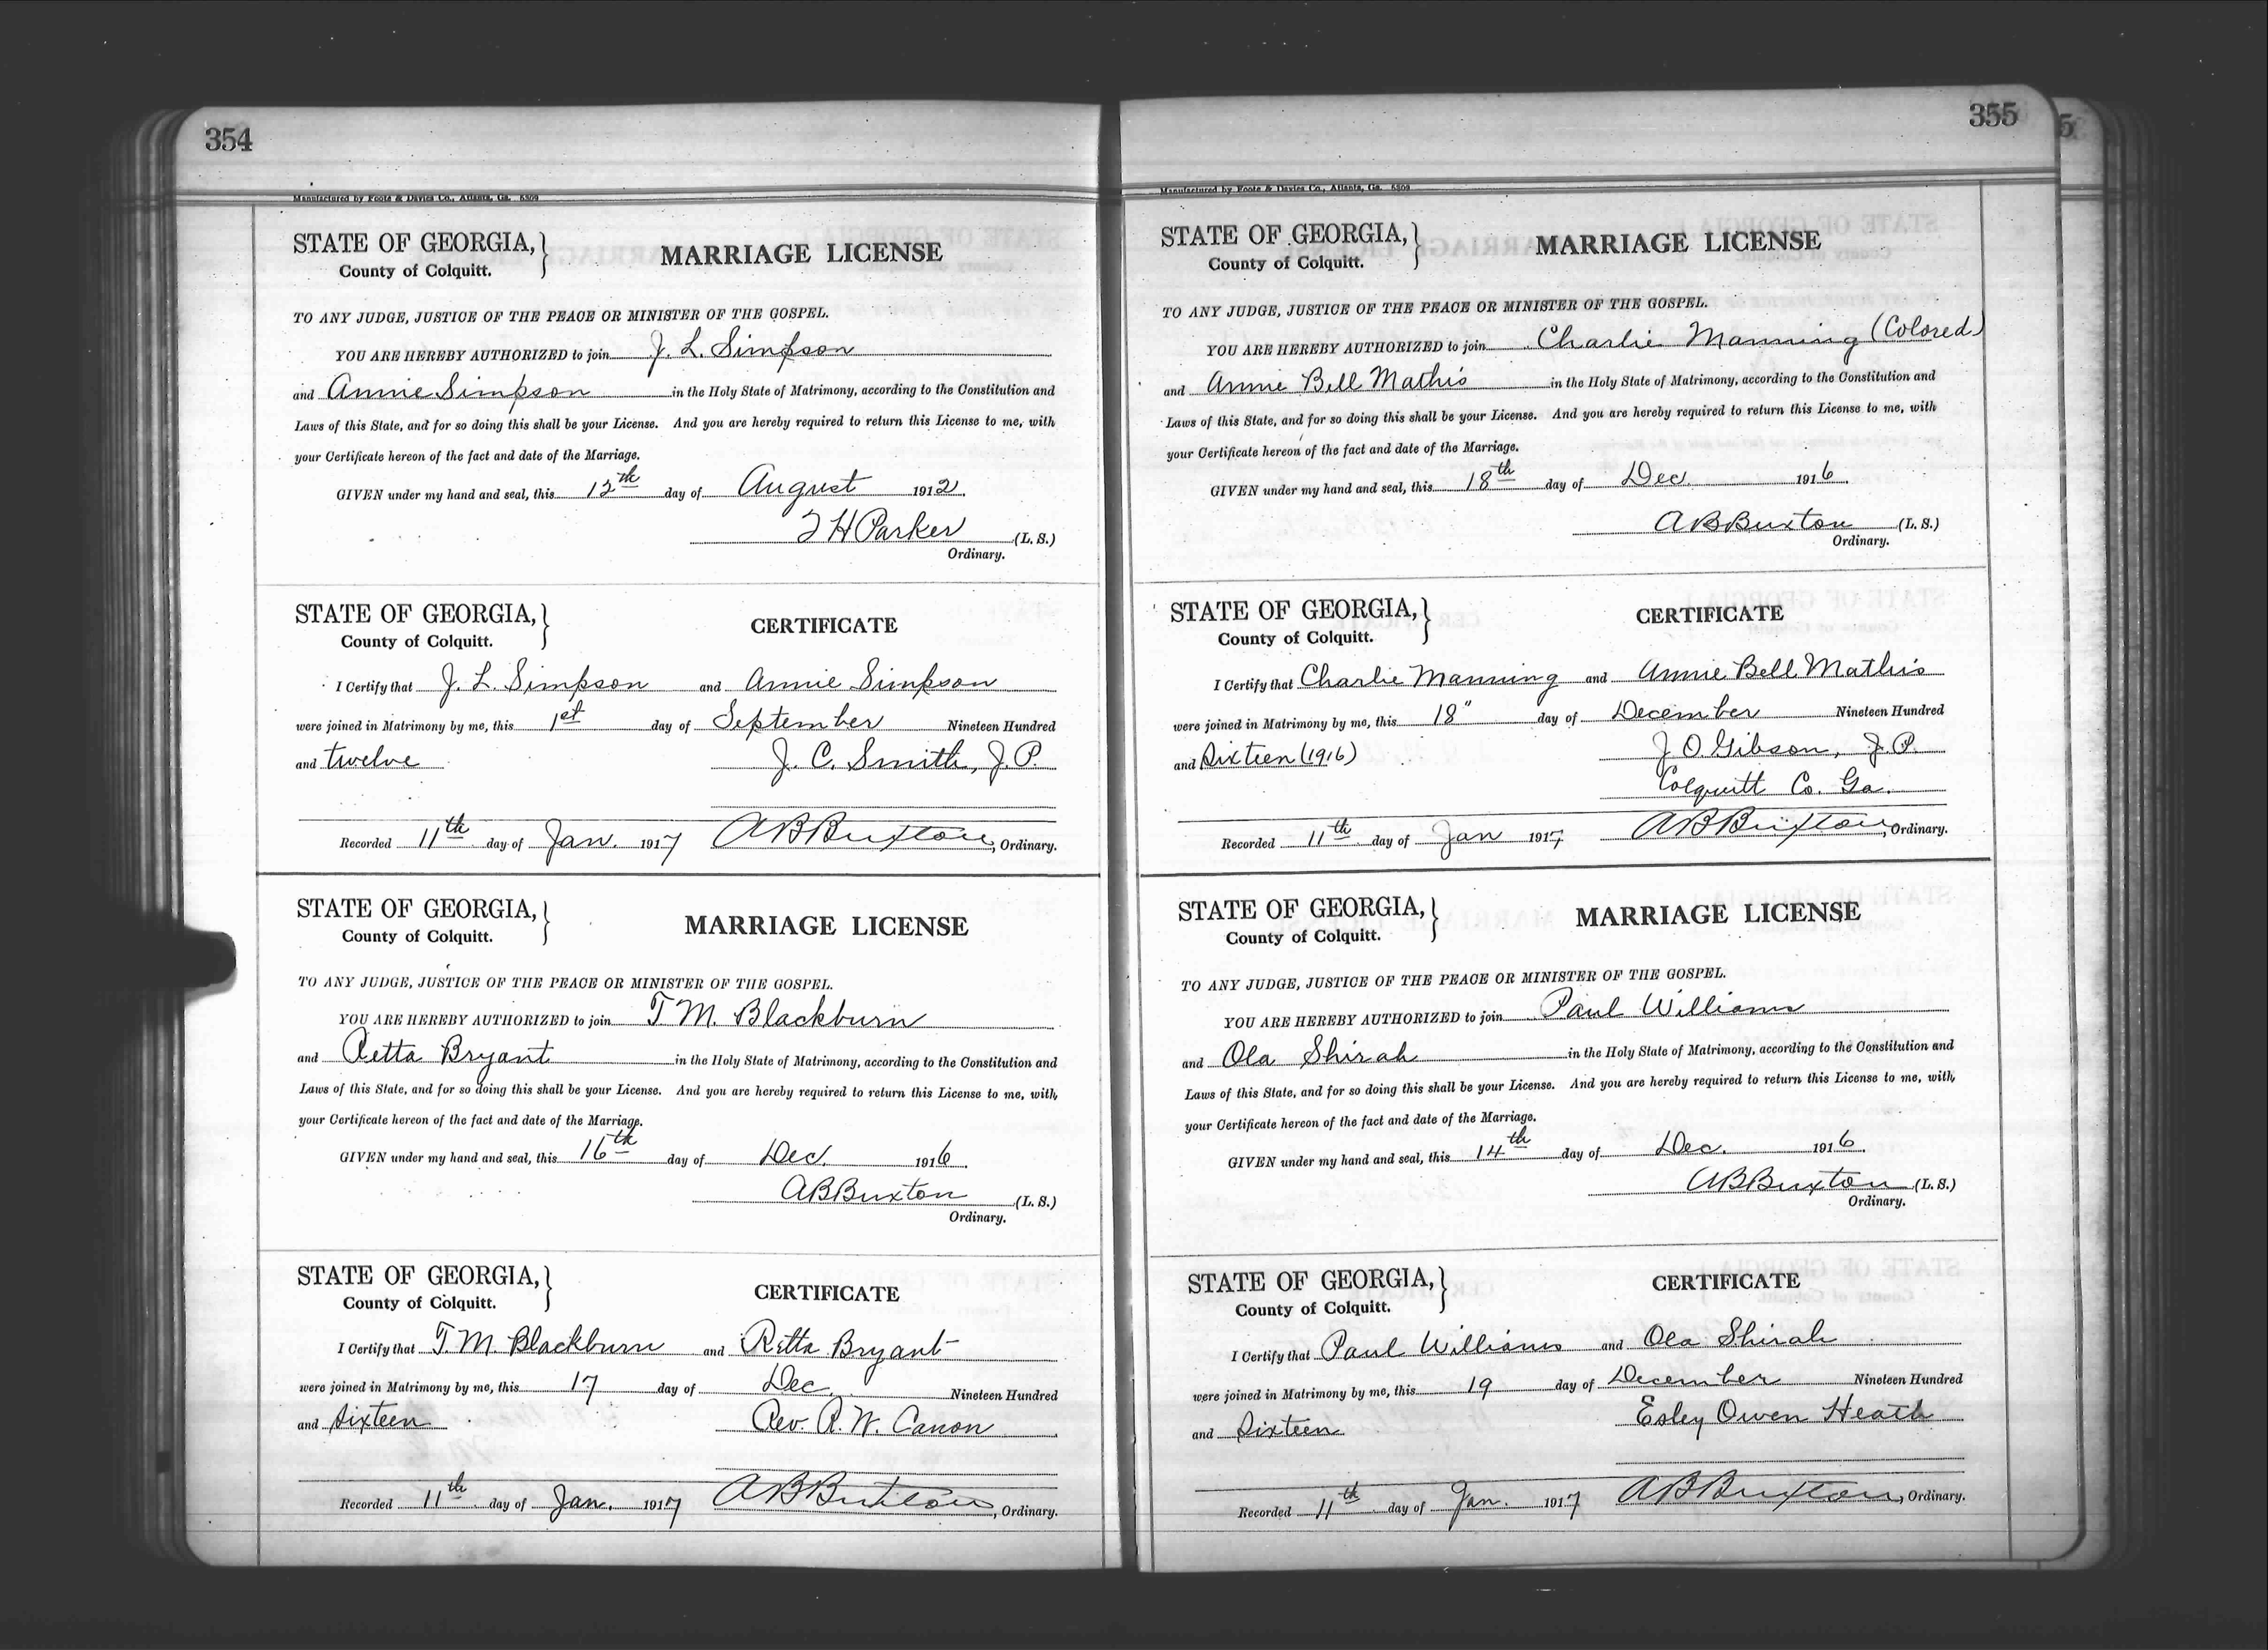 354
Manufactured by Foote & Davies Co., Atlanta, Ga. 5809
STATE OF GEORGIA,
County of Colquitt.
MARRIAGE LICENSE
TO ANY JUDGE, JUSTICE OF THE PEACE OR MINISTER OF THE GOSPEL.
YOU ARE HEREBY AUTHORIZED to join J. L. Simpson
and Annie Simpson in the Holy State of Matrimony, according to the Constitution and
Laws of this State, and for so doing this shall be your License. And you are hereby required to return this License to me, with
your Certificate hereon of the fact and date of the Marriage.
GIVEN under my hand and seal, this 12th day of August 1912.
Parker (L. S.)
Ordinary.
STATE OF GEORGIA,
County of Colquitt.
CERTIFICATE
I Certify that J. L. Simpson and Annie Simpson
were joined in Matrimony by me, this 1st day of September Nineteen Hundred
and twelve J. C. Smith, J. P.
Recorded 11th day of Jan. 1917 A B Buxton, Ordinary.
STATE OF GEORGIA,
County of Colquitt.
MARRIAGE LICENSE
TO ANY JUDGE, JUSTICE OF THE PEACE OR MINISTER OF THE GOSPEL.
YOU ARE HEREBY AUTHORIZED to join T. M. Blackburn
and Retta Bryant in the Holy State of Matrimony, according to the Constitution and
Laws of this State, and for so doing this shall be your License. And you are hereby required to return this License to me, with
your Certificate hereon of the fact and date of the Marriage.
GIVEN under my hand and seal, this 16th day of Dec. 1916.
A B Buxton (L. S.)
Ordinary.
STATE OF GEORGIA,
County of Colquitt.
CERTIFICATE
I Certify that T. M. Blackburn and Retta Bryant
were joined in Matrimony by me, this 17 day of Dec. Nineteen Hundred
and Sixteen Rev. R. W. Canon
Recorded 11th day of Jan. 1917 A B Buxton, Ordinary.
355
Manufactured by Foote & Davies Co., Atlanta, Ga. 5809
STATE OF GEORGIA,
County of Colquitt.
MARRIAGE LICENSE
TO ANY JUDGE, JUSTICE OF THE PEACE OR MINISTER OF THE GOSPEL.
YOU ARE HEREBY AUTHORIZED to join Charlie Manning (Colored)
and Annie Bell Mathis in the Holy State of Matrimony, according to the Constitution and
Laws of this State, and for so doing this shall be your License. And you are hereby required to return this License to me, with
your Certificate hereon of the fact and date of the Marriage.
GIVEN under my hand and seal, this 18th day of Dec 1916.
A B Buxton (L. S.)
Ordinary.
STATE OF GEORGIA,
County of Colquitt.
CERTIFICATE
I Certify that Charlie Manning and Annie Bell Mathis
were joined in Matrimony by me, this 18" day of December Nineteen Hundred
and Sixteen (1916) J. O. Gibson, J. P.
Colquitt Co. Ga.
Recorded 11th day of Jan 1917 A B Buxton, Ordinary.
STATE OF GEORGIA,
County of Colquitt.
MARRIAGE LICENSE
TO ANY JUDGE, JUSTICE OF THE PEACE OR MINISTER OF THE GOSPEL.
YOU ARE HEREBY AUTHORIZED to join Paul Williams
and Ola Shirah in the Holy State of Matrimony, according to the Constitution and
Laws of this State, and for so doing this shall be your License. And you are hereby required to return this License to me, with
your Certificate hereon of the fact and date of the Marriage.
GIVEN under my hand and seal, this 14th day of Dec. 1916.
A B Buxton (L. S.)
Ordinary.
STATE OF GEORGIA,
County of Colquitt.
CERTIFICATE
I Certify that Paul Williams and Ola Shirah
were joined in Matrimony by me, this 19 day of December Nineteen Hundred
and Sixteen Esley Owen Heath
Recorded 11th day of Jan. 1917 A B Buxton, Ordinary.